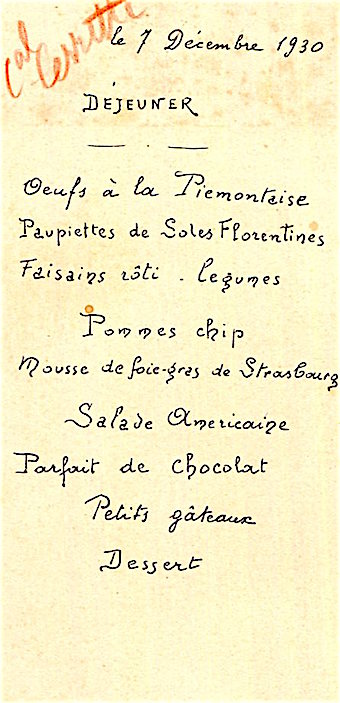 Cal
Cerretti
le 7 Décembre 1930
DÉJEUNER
Oeufs à la Piemontaise
Paupiettes de Soles Florentines
Faisains rôti - legumes
Pommes chip
Mousse de foie-gras de Strasbourg
Salade Americaine
Parfait de chocolat
Petits gâteaux
Dessert